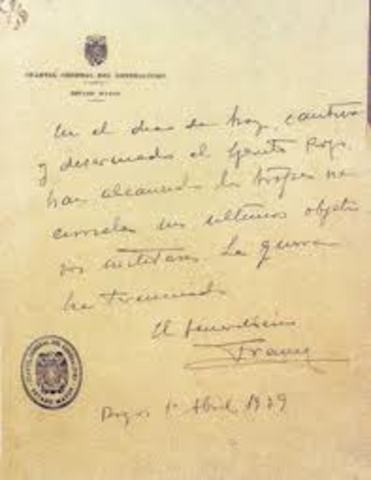 CUARTEL GENERAL DEL GENERALISIMO
ESTADO MAYOR
En el dia de hoy, cautivo
y desarmado el Ejercito Rojo,
han alcanzado las tropas na-
cionales sus ultimos objeti-
vos militares. La guerra
ha terminado
El Generalisimo
Franco
Burgos 1º Abril 1939
CUARTEL GENERAL DEL GENERALISIMO
ESTADO MAYOR